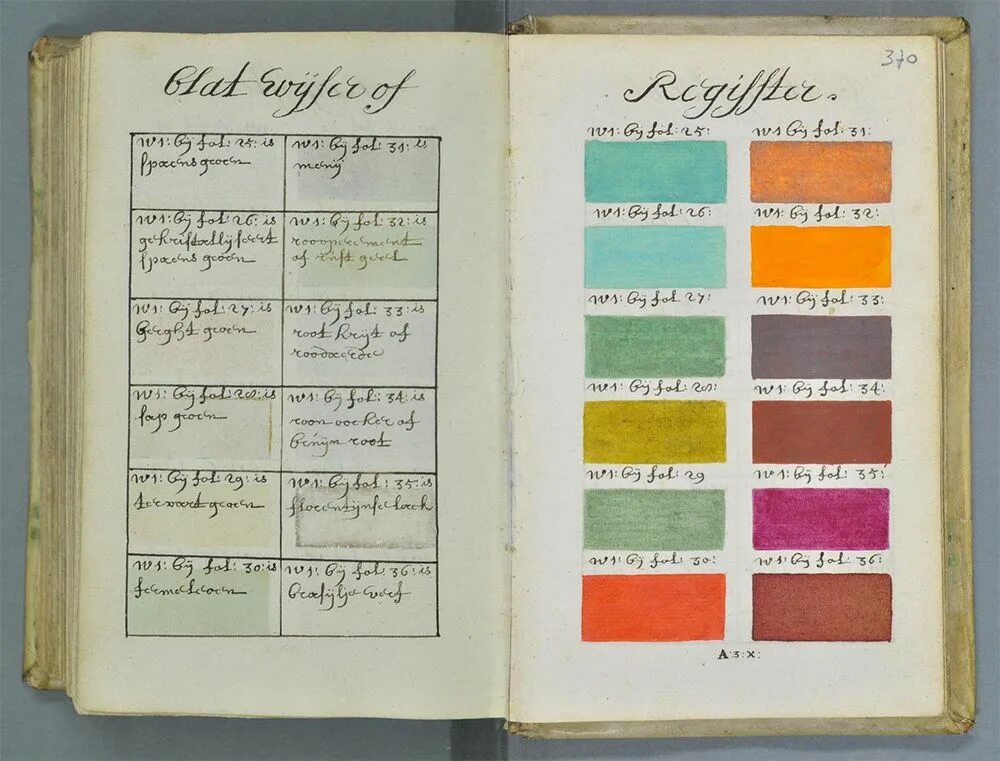 Blat Wijser of
w1: bij fol: 25: is
spaens groen
w1: bij fol: 31: is
menij
w1: bij fol: 26: is
gekristallijseert
spaens groen
w1: bij fol: 32: is
rooopperement
of rust geel
w1: bij fol: 27: is
berght groen
w1: bij fol: 33: is
root krijt of
roodaerde
w1: bij fol: 28: is
sap groen
w1: bij fol: 34: is
roon oocker of
bruijn root
w1: bij fol: 29: is
terwart groen
w1: bij fol: 35: is
florentijnse lack
w1: bij fol: 30: is
fermeloen
w1: bij fol: 36: is
brasijlje verf
370
Regisster.
w1: bij fol: 25:
w1 bij fol: 31:
w1: bij fol: 26:
w1: bij fol: 32:
w1: bij fol: 27:
w1: bij fol: 33:
w1: bij fol: 28:
w1: bij fol: 34:
w1: bij fol: 29
w1: bij fol: 35:
w1: bij fol: 30:
w1: bij fol: 36:
A:3:x: